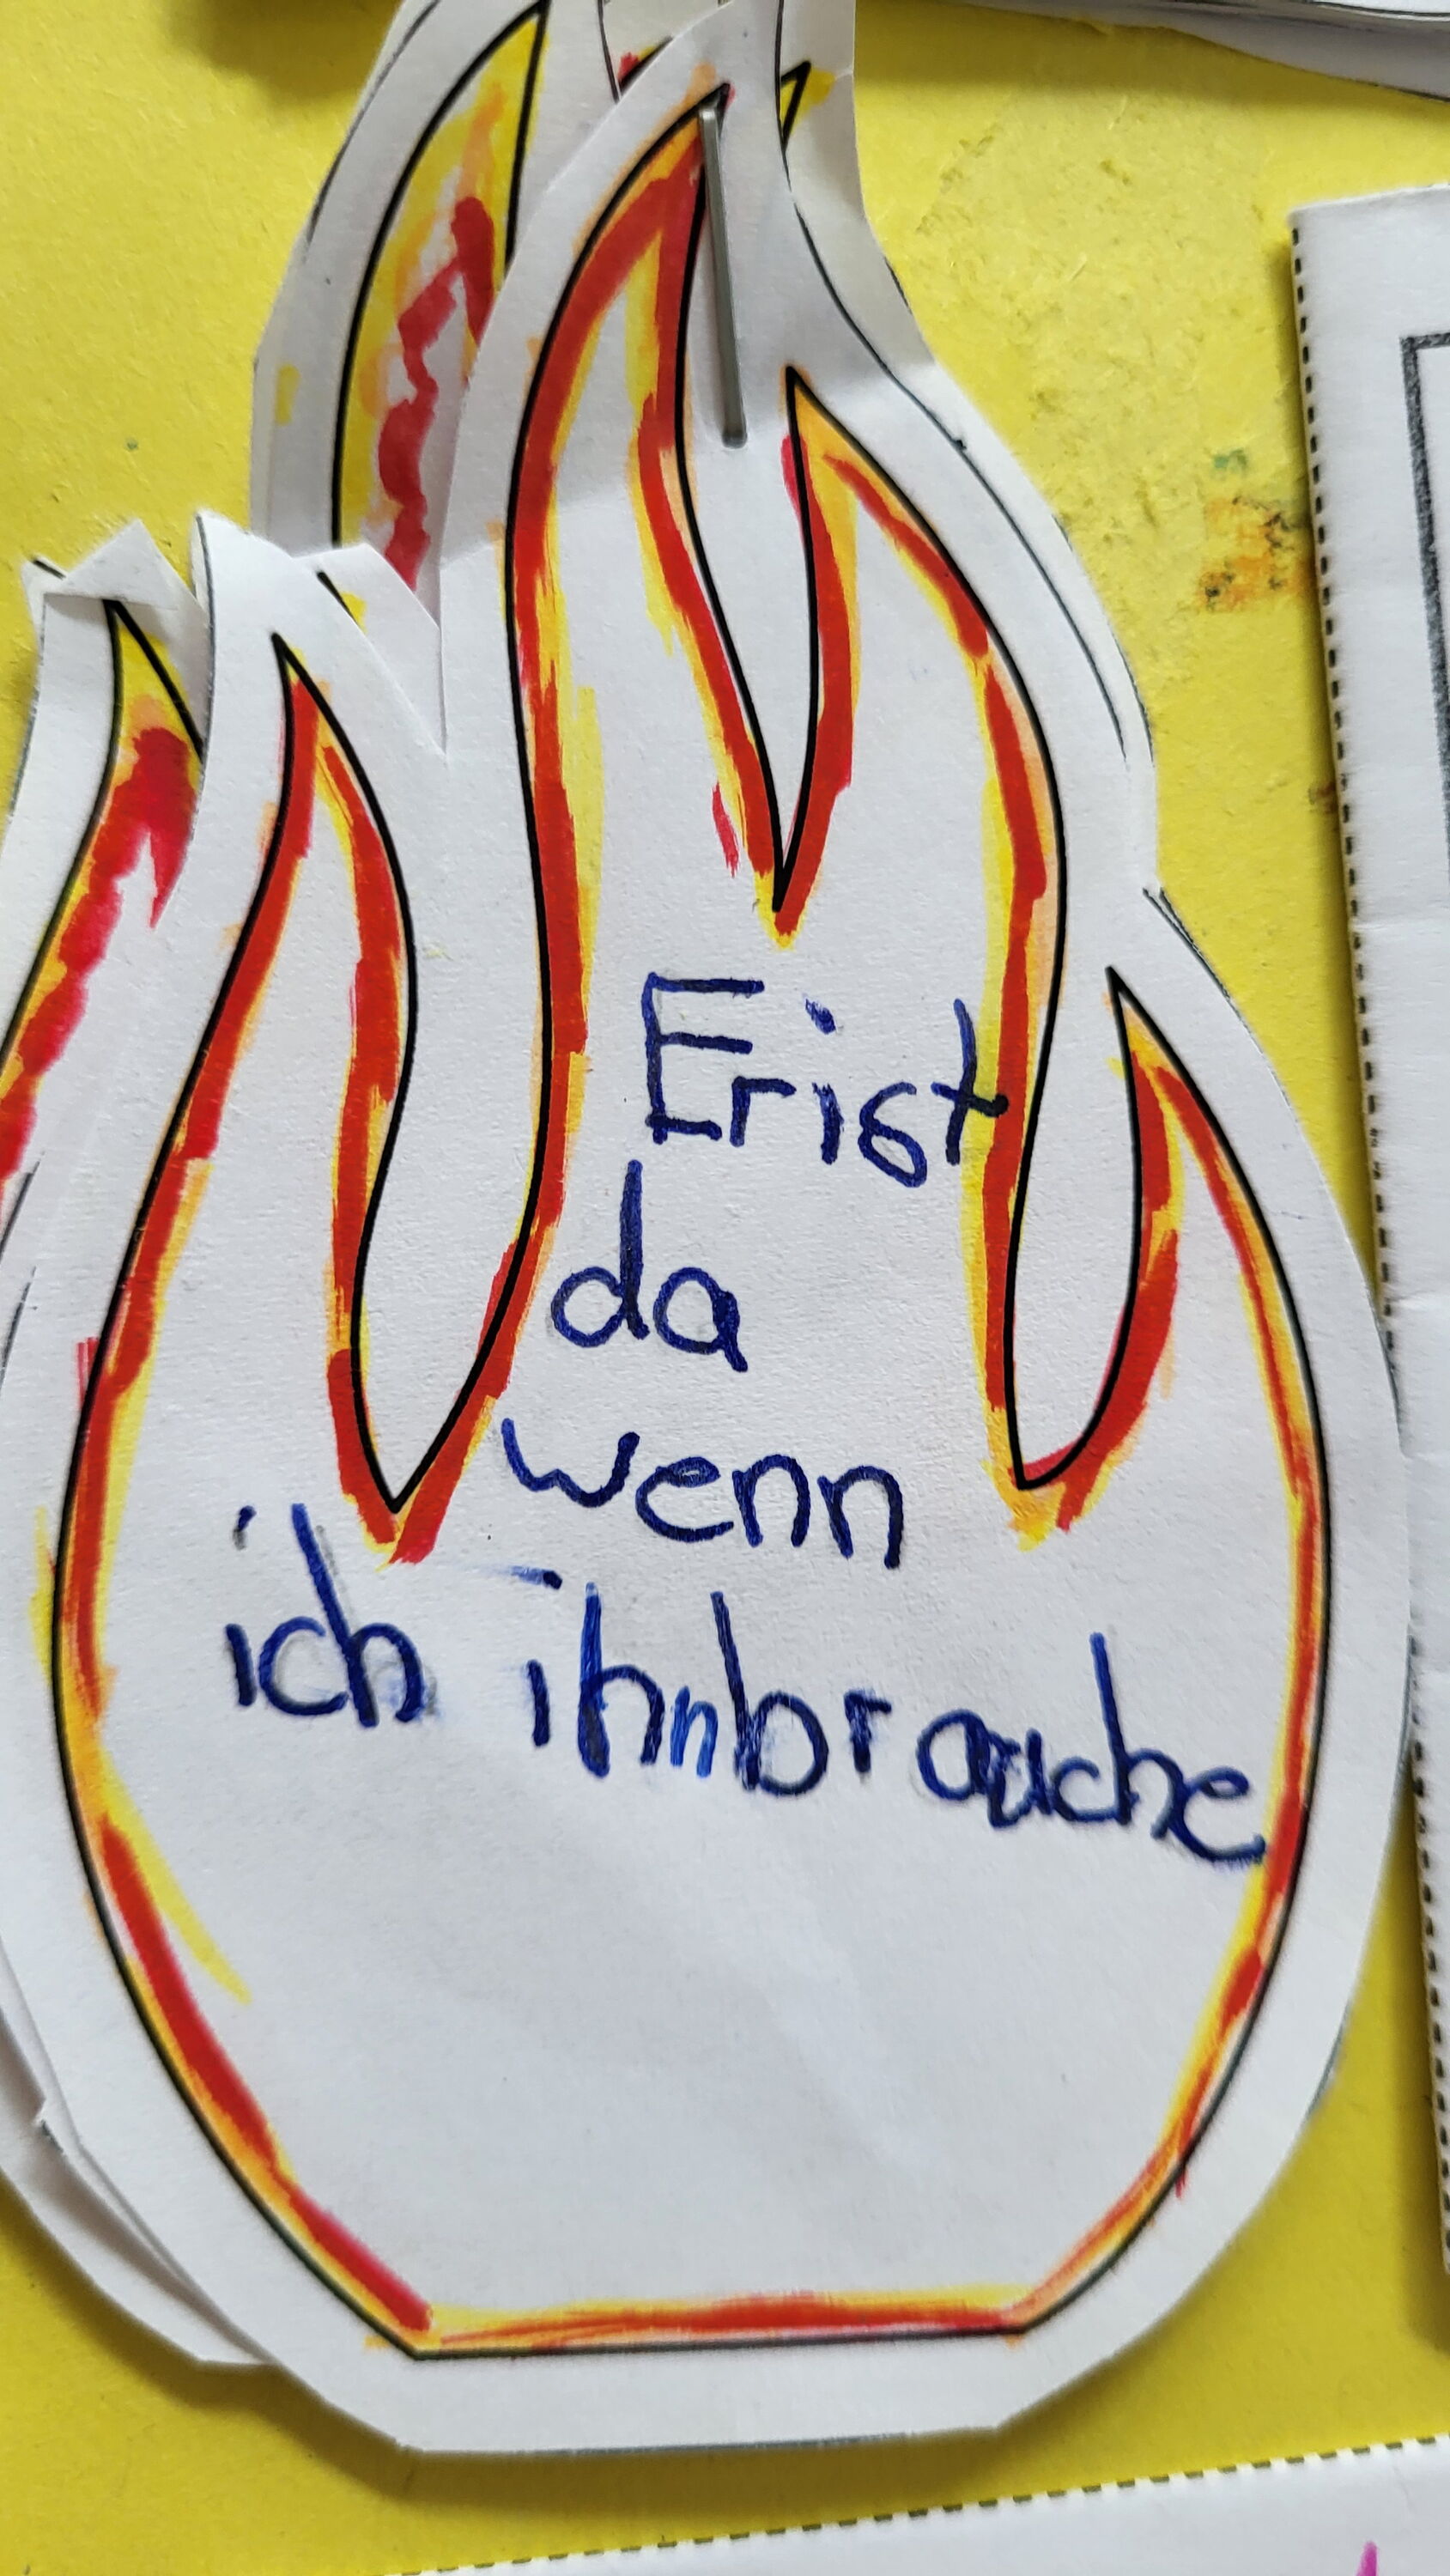 Er ist
da
wenn
ich ihn brauche